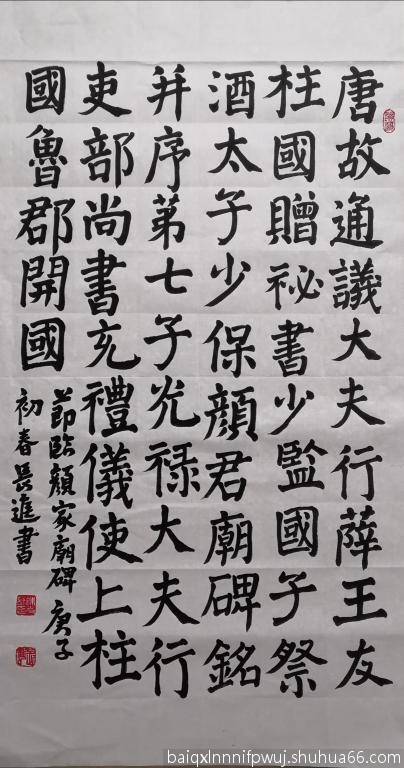 唐故通議大夫行薛王友
柱國贈祕書少監國子祭
酒太子少保顔君廟碑銘
并序第七子光禄大夫行
吏部尚書充禮儀使上柱
國魯郡開國
節臨顔家廟碑 庚子
初春長進書
baiqxlnnnifpwuj.shuhua66.com